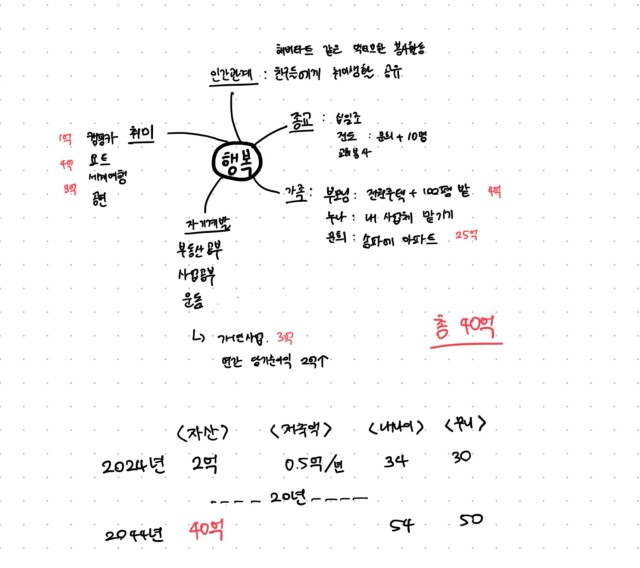 해비타트 같은 박요한 봉사활동
인간관계 : 친구들에게 취미생활 공유
종교 : 십일조
전도 : 윤희 + 10명
교회봉사
취미
1억 캠핑카
4억 요트
세계여행
3억
공연
행복
가족 : 부모님 : 전원주택 + 100평 밭 4억
누나 : 내 사업체 맡기기
윤희 : 송파에 아파트 25억
자기계발
부동산공부
사업공부
운동
↳ 개인사업 3억
연간 당기순이익 2억↑
총 40억
<자산> <저축액> <내나이>
2024년 2억 0.5억/년 34 30
---- 20년 ----
2044년 40억 54 50